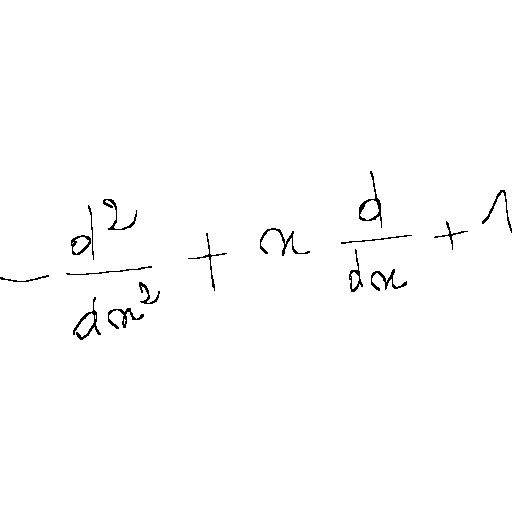 - d²/dx² + x d/dx + 1